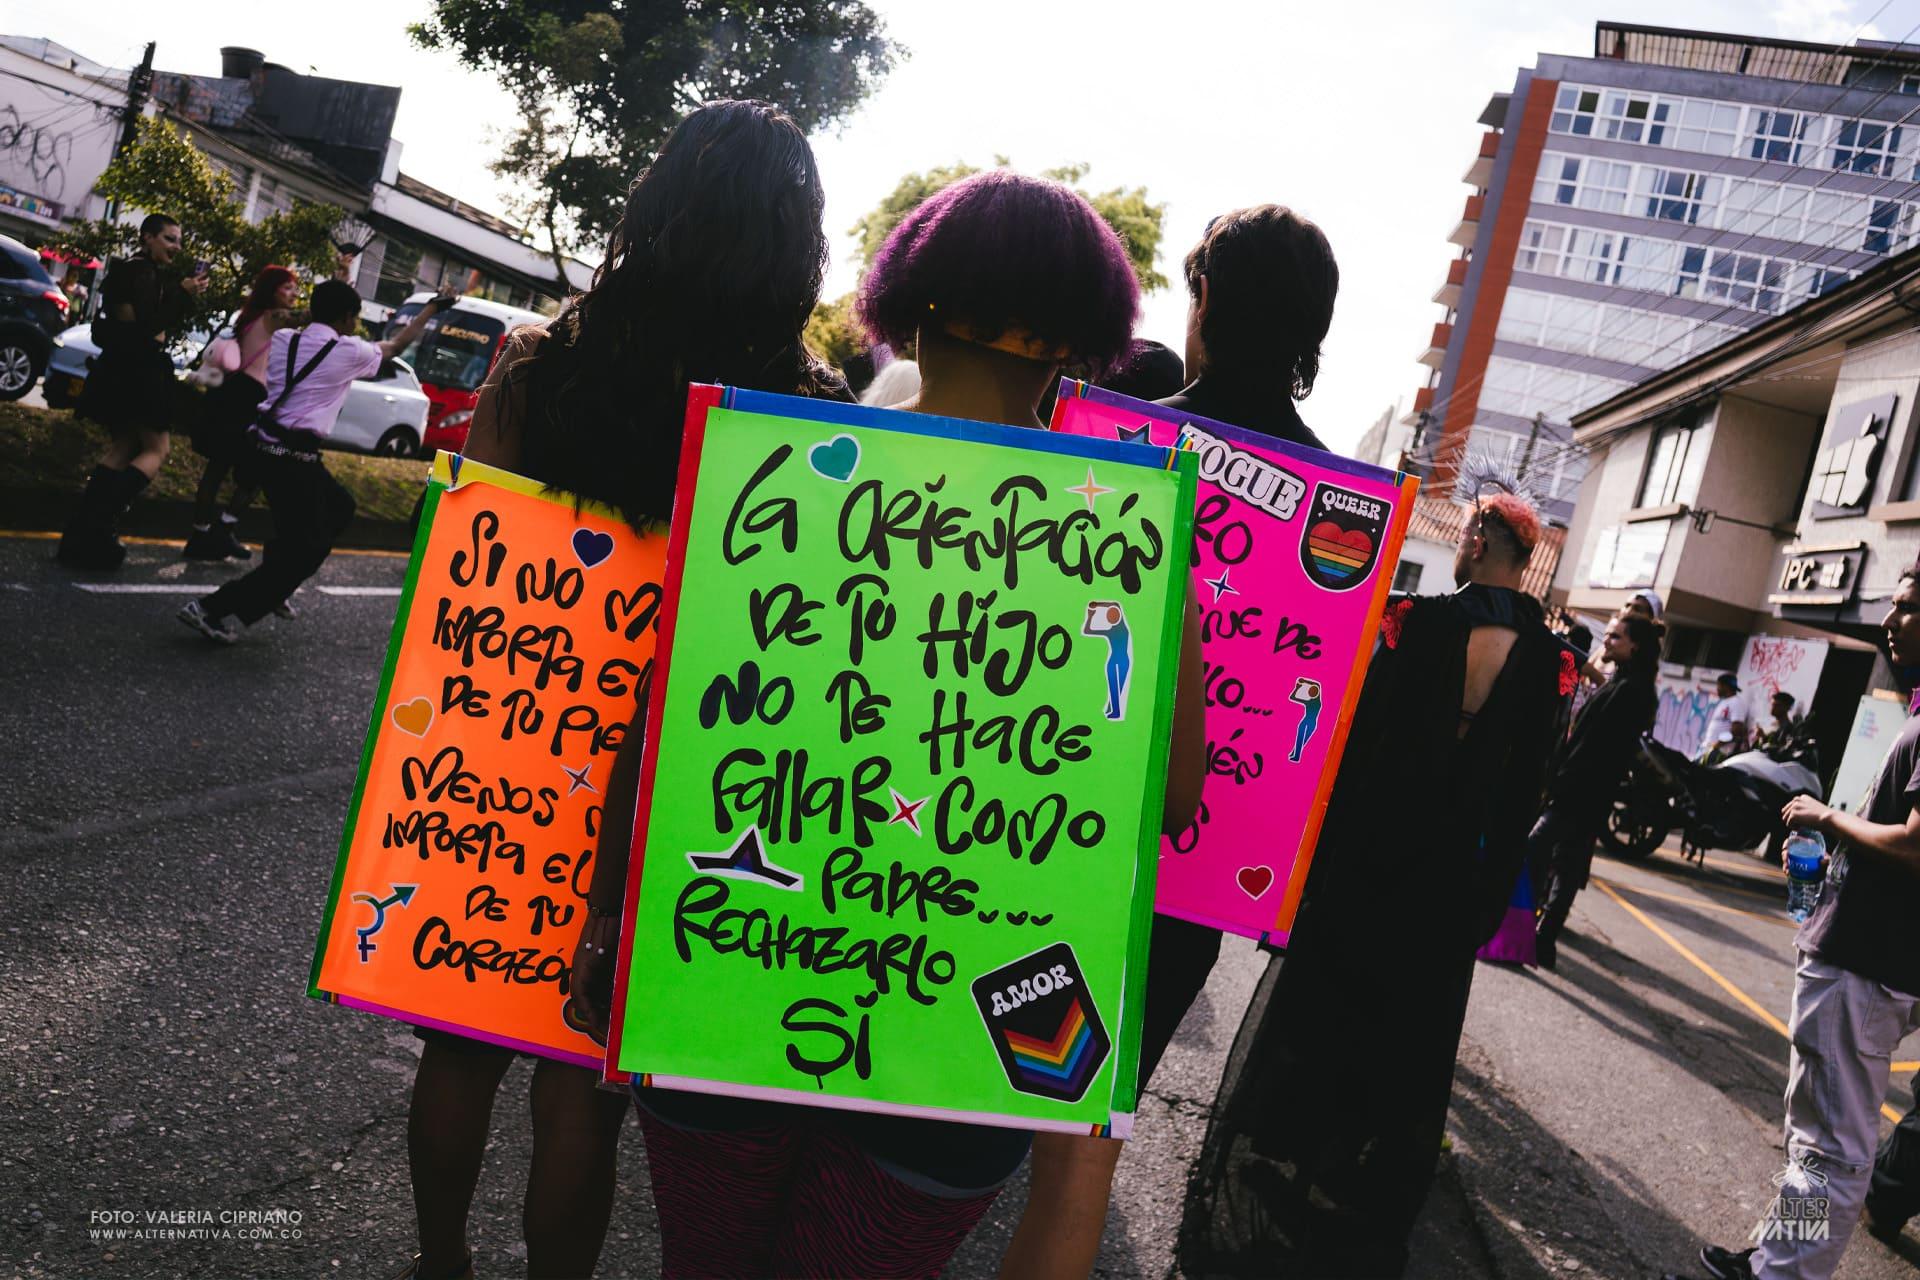 EJECUTIVO
SI NO M
IMPORTA El
DE TU PIE
MENOS
IMPORTA El
DE TU
CORAZÓ
La ORIENTACIÓN
DE TU HIJO
NO TE HaCE
FallaR COMO
PADRE...
RECHAZARLO
SÍ
AMOR
VOGUE
QUEER
RO
NE DE
LO...
IÉN
S
PC
FOTO: VALERIA CIPRIANO
WWW.ALTERNATIVA.COM.CO
ALTER
NATIVA